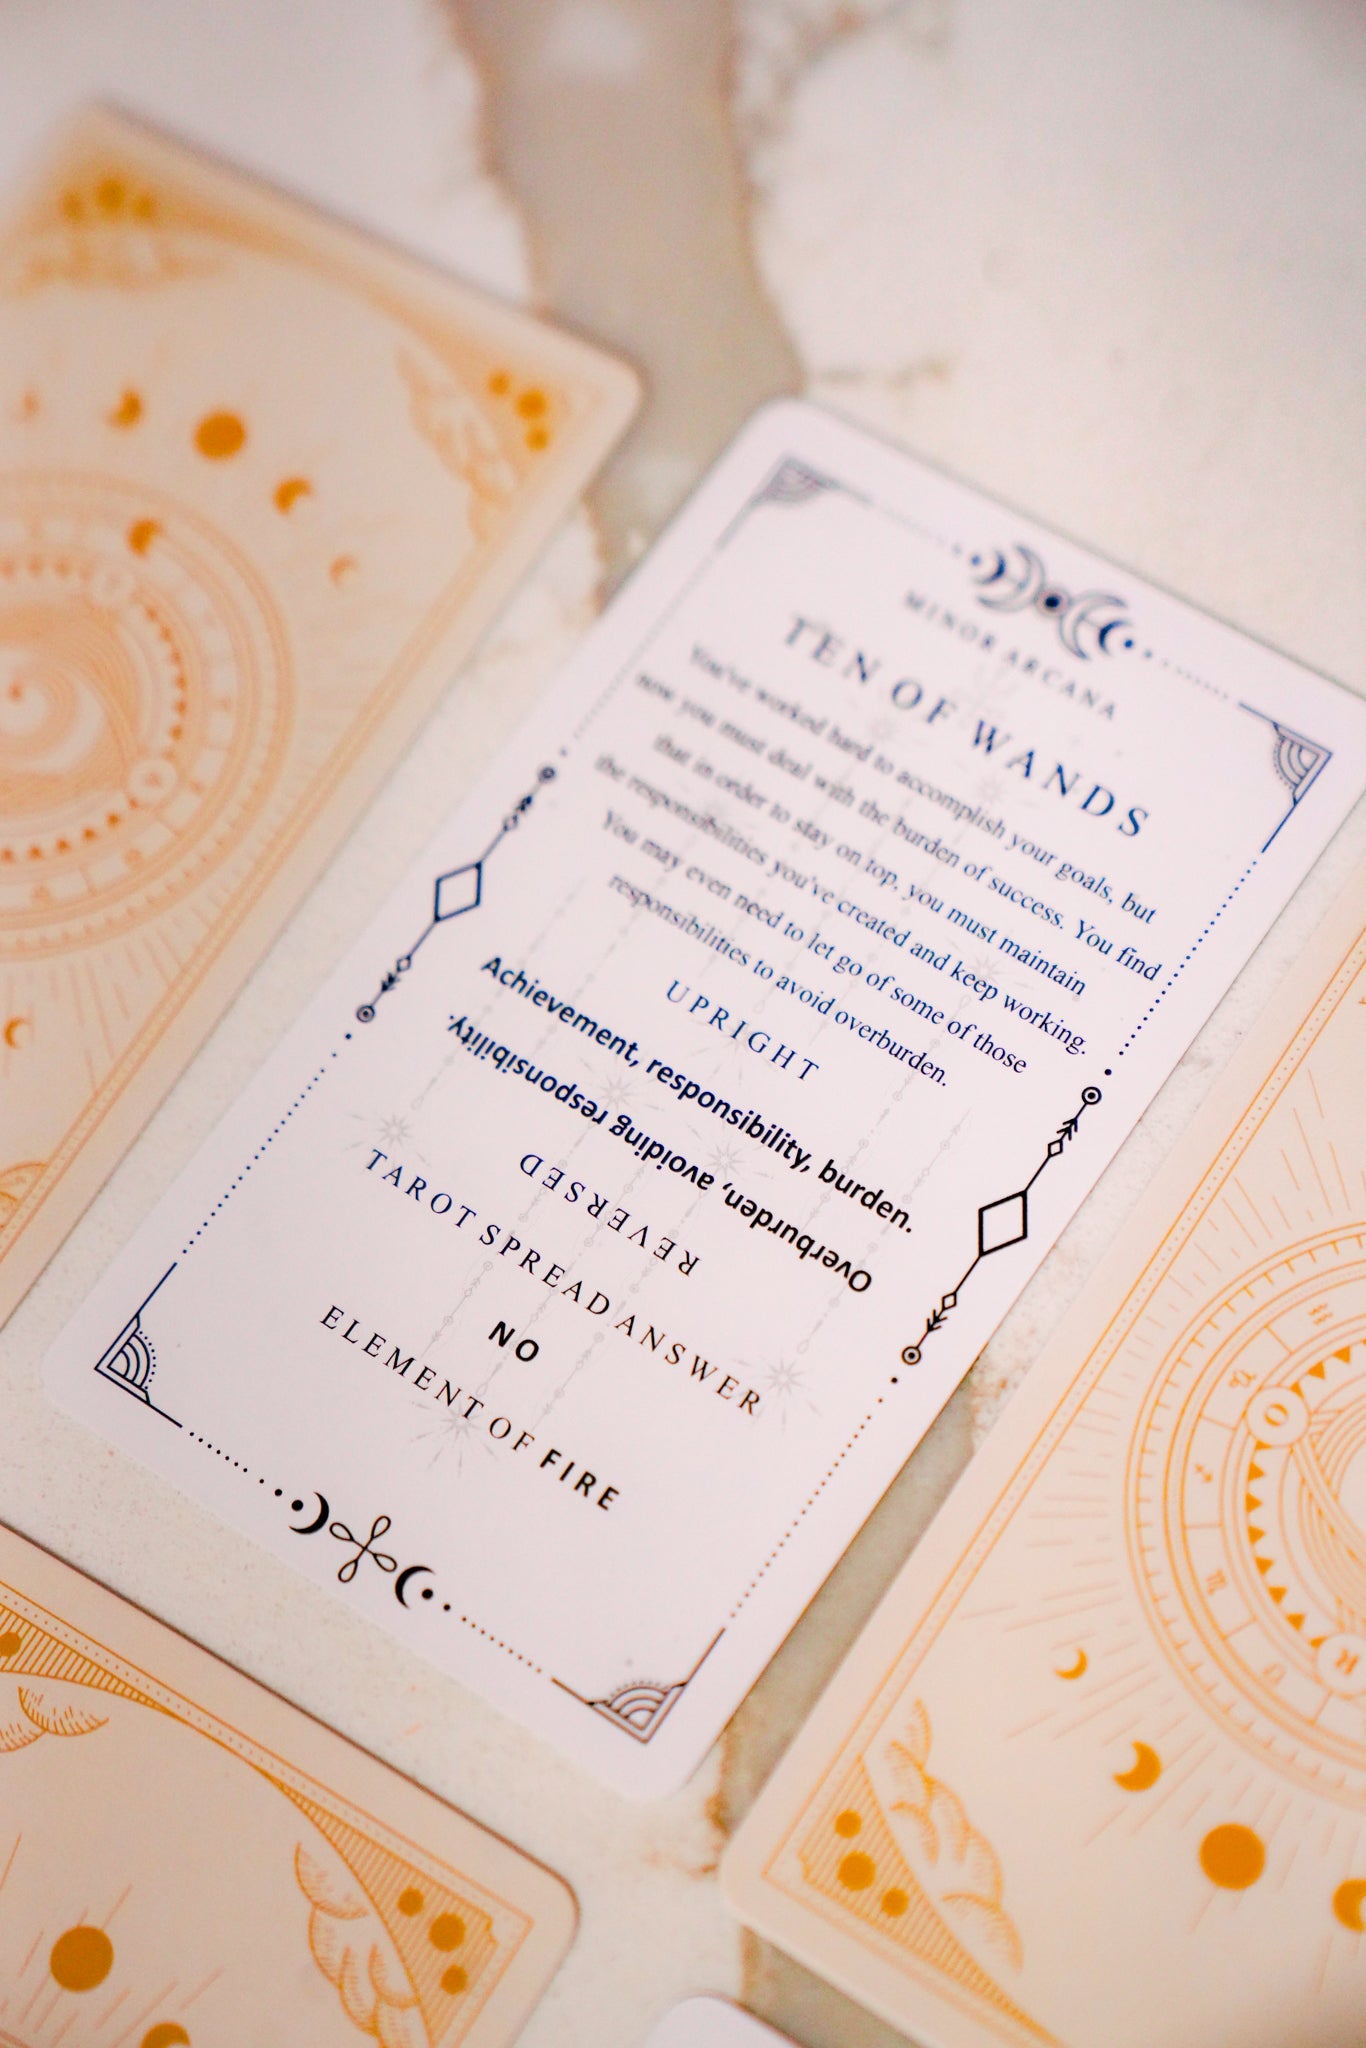 MINOR ARCANA
TEN OF WANDS
You've worked hard to accomplish your goals, but
now you must deal with the burden of success. You find
that in order to stay on top, you must maintain
the responsibilities you've created and keep working.
You may even need to let go of some of those
responsibilities to avoid overburden.
UPRIGHT
Achievement, responsibility, burden.
Overburden, avoiding responsibility.
REVERSED
TAROT SPREAD ANSWER
NO
ELEMENT OF FIRE